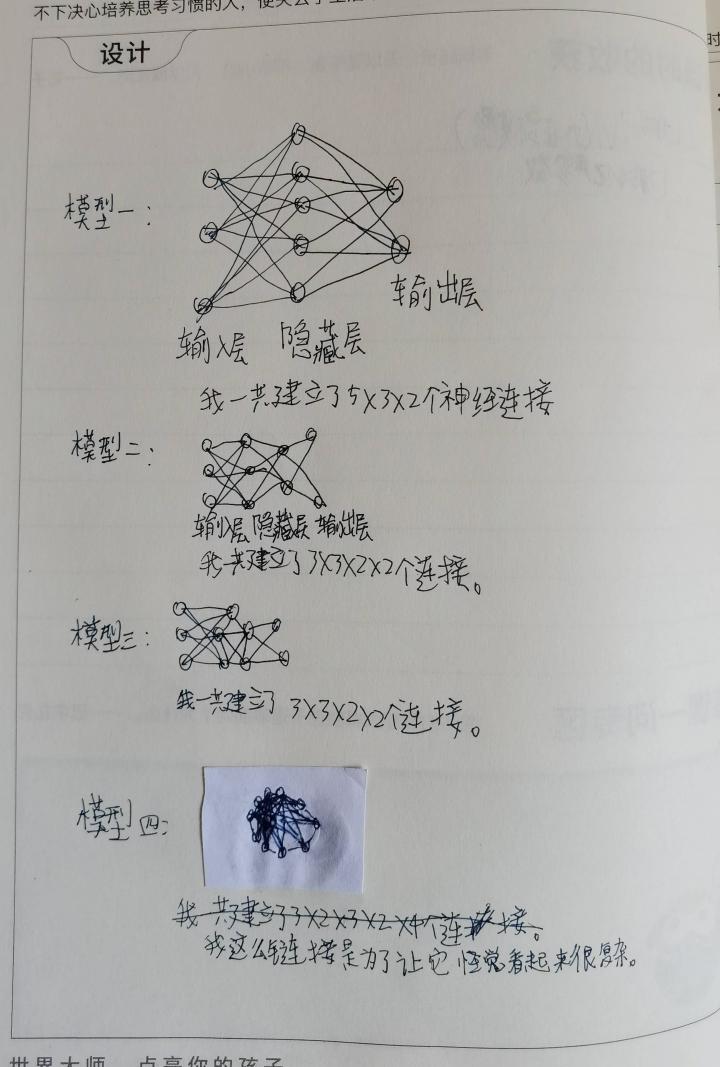 不下决心培养思考习惯的人,便失去了生活
设计
模型一:
输出层
输入层 隐藏层
我一共建立了5X3X2个神经连接
模型二:
输入层 隐藏层 输出层
我一共建立了3X3X2X2个连接。
模型三:
我一共建立了3X3X2X2个连接。
模型四:
我一共建立了3X2X3X2X4个连接。
我这么链接是为了让它 看起来很复杂。
世界大师 点亮你的孩子
时